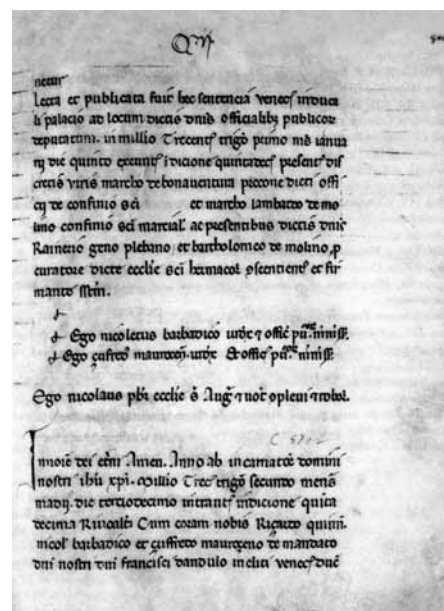 netur
Lecta et publicata fuit hec sentencia veneč in duca
li palacio ad locum dictis dnis officialibȝ publicoꝝ
deputatum. in millio Trecent trigo primo mēs ianua
rij die quinto exeunt indicione quintadec present dis
cretis viris marcho de bonaventura precone dicti offi
cij de confinio sci et marcho lambardo de mo
lino confinio sci marcial ac presentibus dictis dnis
Rainerio geno plebano et bartholomeo de molino p
curatore dicte ecclie sci hermacol ꝯsencient et fir
manto
Ego nicoletus barbadico
Ego çufredus mauroceñ
Ego nicolaus pbr ecclie s Aug et not ꝯplevi et robor.
In noie dei etni Amen. Anno ab incarnatoe domini
nostri ihu xpi. Millio Trec trigo secundo mensis
madij. die terciodecimo intrant indicione quita
decima Rivoalti Cum coram nobis Ricardo quirin.
nicol barbadico et çuffredo mauroceno de mandato
dni nostri dni francisci dandulo incliti venec duc